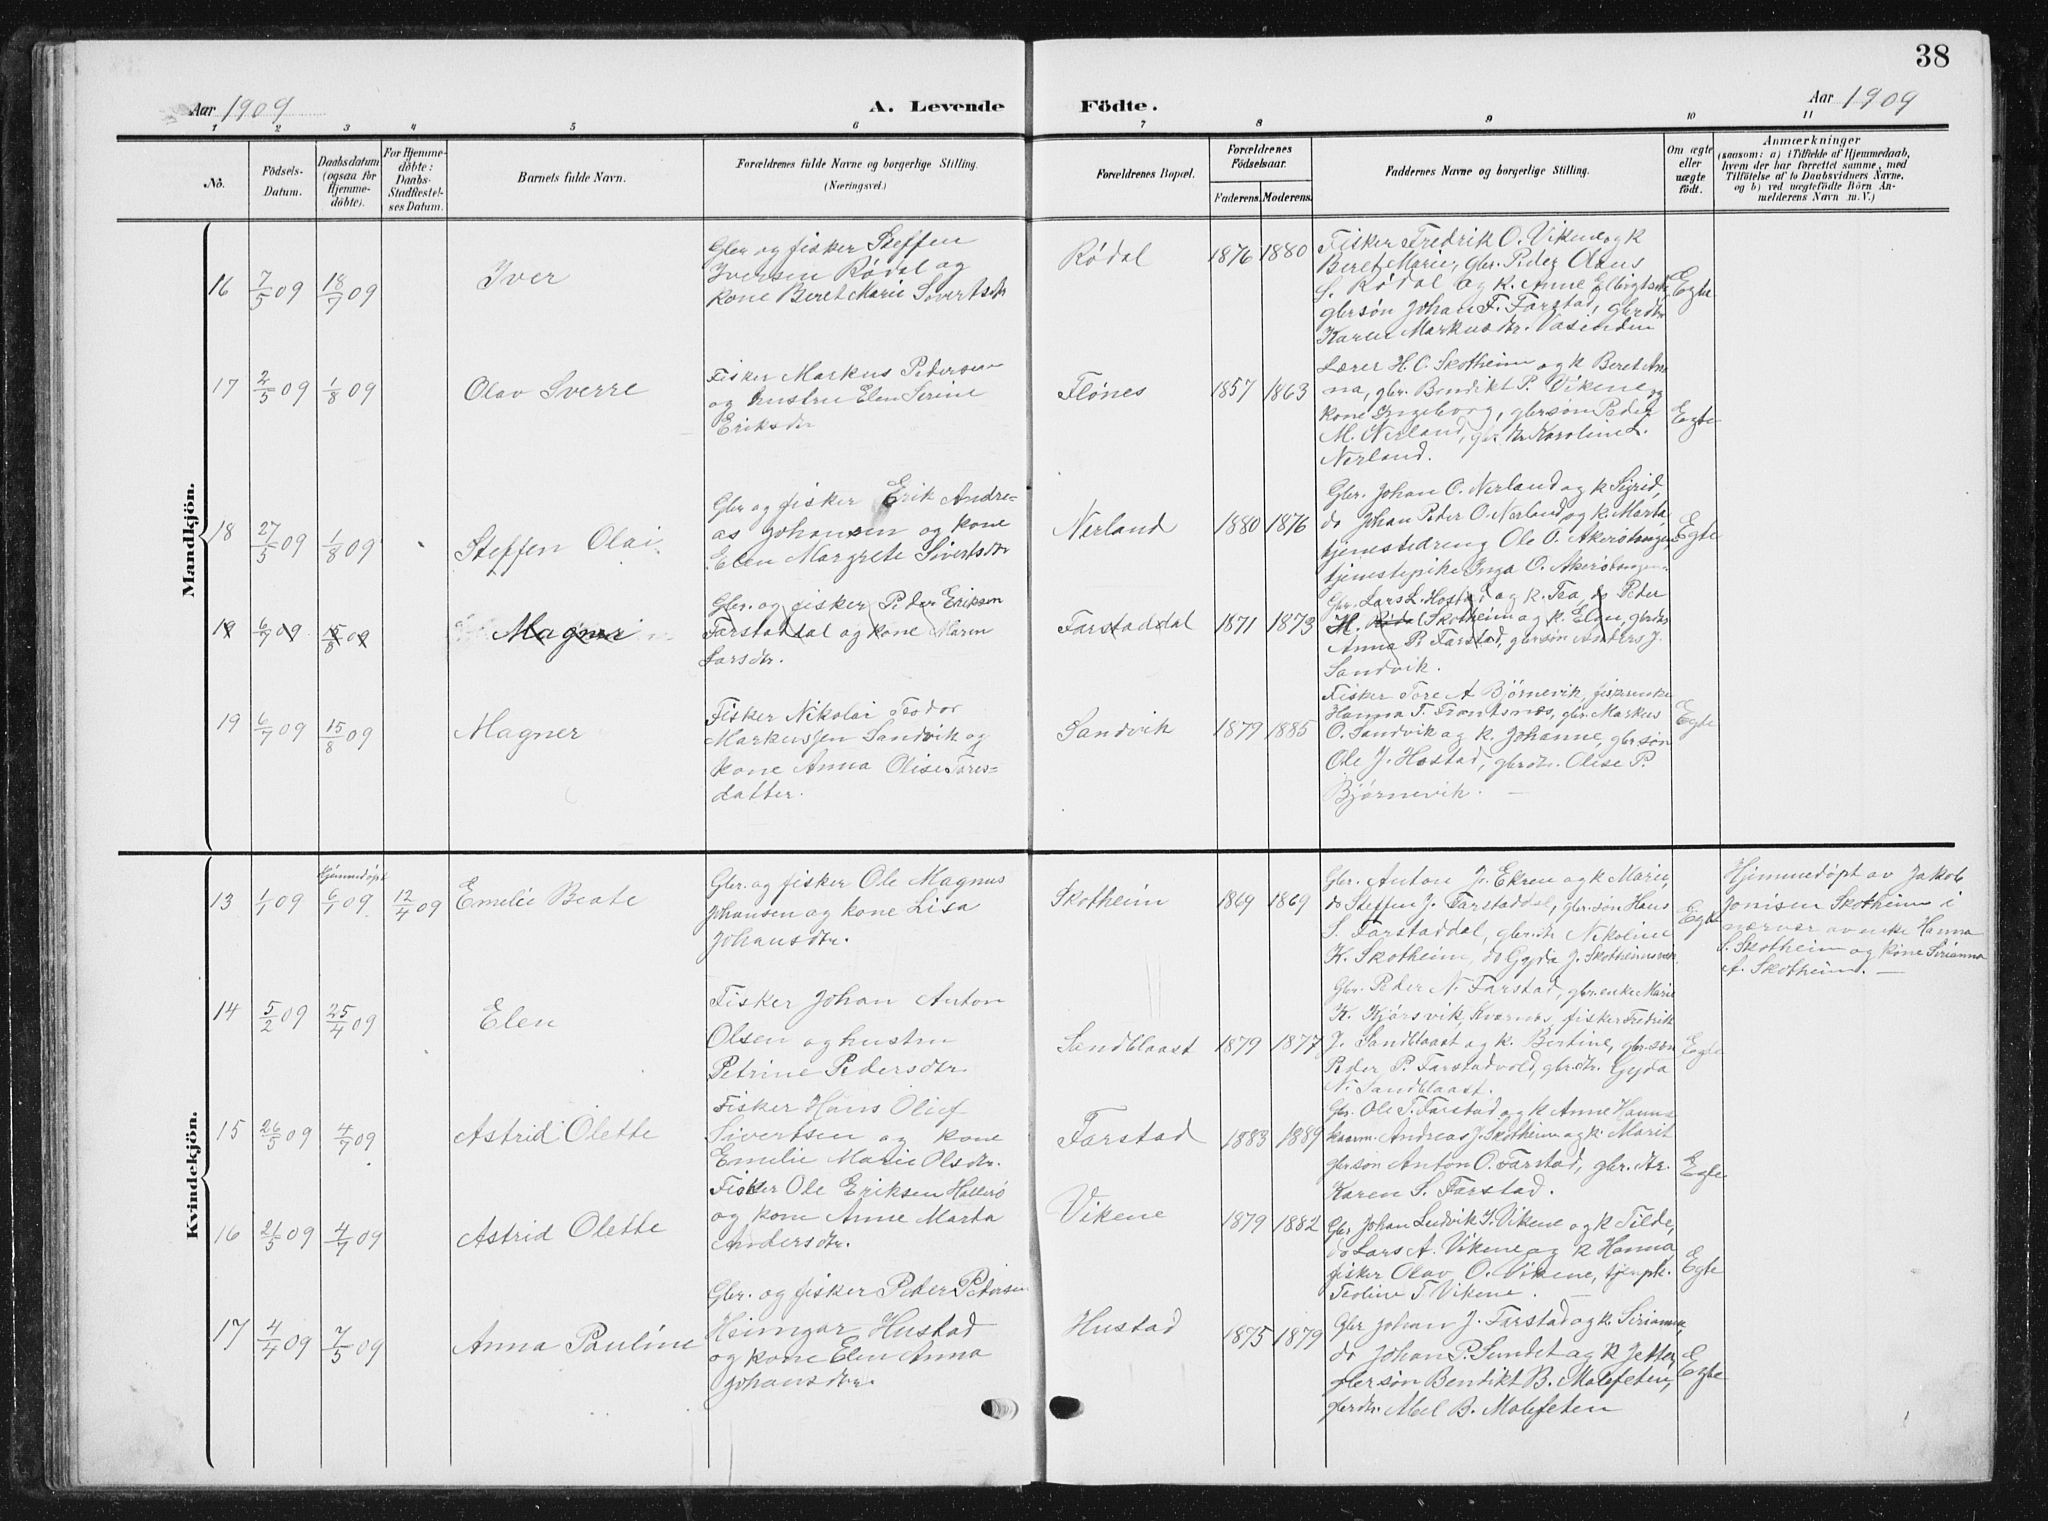 38
Aar 1909
A. Levende Födte.
Aar 1909
1 2 3 4 5 6 7 8 9 10 11
No.
Födsels-
Datum.
Daabsdatum
(ogsaa for
Hjemme-
döbte).
For Hjemme-
döbte:
Daabs-
Stadfæstel-
ses Datum.
Barnets fulde Navn.
Forældrenes fulde Navne og borgerlige Stilling.
(Næringsvei.)
Forældrenes Bopæl.
Forældrenes
Födselsaar.
Faderens. Moderens.
Faddernes Navne og borgerlige Stilling.
Om ægte
eller
uægte
født.
Anmærkninger
(saasom: a) i Tilfælde af Hjemmedaab,
hvem der har forrettet samme, med
Tilföielse af to Daabsvidners Navne,
og b) ved uægtefödte Börn An-
melderens Navn m. V.)
Mandkjön.
16 7/5 09 18/7 09 Iver
Gbr og fisker Steffen
Iversen Rødal og
kone Beret Marie Sivertsdtr
Rødal 1876 1880
Fisker Fredrik O. Vikene og k
Beret Marie, gbr. Peder Olaus
S. Rødal og k. Anne
gbrsøn Johan F. Farstad, gbrdtr
Karen Markusdtr. Vasinden
Egte
17 2/5 09 1/8 09 Olav Sverre
Fisker Markus Pedersen
og hustru Elen Serine
Eriksdtr
Flønes 1857 1863
Lærer H. O. Skotheim og k Beret An
na, gbr. Bendikt P. Vikene og
kone Ingeborg, gbrsøn Peder
M. Nerland, gbr. dtr Karoline L.
Nerland.
Egte
18 27/5 09 1/8 09 Steffen Olai
Gbr og fisker Erik Andre-
as Johansen og kone
Elen Margrete Sivertsdtr
Nerland 1880 1876
Gbr. Johan O. Nerland og k Sigrid,
do Johan Peder O. Nerland og k. Marta,
tjenestedreng Ole O.
tjenestepike Inga O.
Egte
19 6/7 09 15/8 09 Magner
Gbr. og fisker Peder Eriksen
Farstaddal og kone Maren
Larsdtr.
Farstaddal 1871 1873
Gbr. Lars L. Hostad og k. Tea, do Peder
M. Rødal Skotheim og k. Elen, gbrdtr
Anna P. Farstad, gbrsøn Anders J.
Sandvik.
19 6/7 09 15/8 09 Magner
Fisker Nikolai Teodor
Markussen Sandvik og
kone Anna Olise Tores-
datter.
Sandvik 1879 1885
Fisker Tore A Bjørnevik, fiskerenke
Hanna T. gbr. Markus
O. Sandvik og k. Johanne, gbrsøn
Ole J. Hostad, gbrdtr. Olise P.
Bjørnevik.
Egte
Kvindekjön.
13 1/1 09 Hjemmedøpt 6/1 09 12/4 09 Emelie Beate
Gbr. og fisker Ole Magnus
Johansen og kone Lisa
Johansdtr.
Skotheim 1869 1869
Gbr. Anton J. Ekren og k Marie,
do Steffen J. Farstaddal, gbr. søn Hans
S. Farstaddal, gbr. dtr Nikoline
K. Skotheim, do Gyda J. Skotheimsvik
Egte
Hjemmedøpt av Jakob
Jonisen Skotheim i
nærvær av enke Hanna
S. Skotheim og kone Sirianna
A. Skotheim. —
14 5/2 09 25/4 09 Elen
Fisker Johan Anton
Olsen og hustru
Petrine Pedersdtr.
Sandblaast 1879 1877
Gbr. Peder N. Farstad, gbr. enke Marie
K. Kjørsvik, Kvernes, fisker Fredrik
J. Sandblaast og k. Bertine, gbr. søn
Peder P. Farstadvold, gbr. dtr. Gyda
N. Sandblaast.
Egte
15 26/5 09 4/7 09 Astrid Olette
Fisker Hans Oluf
Sivertsen og kone
Emelie Marie Olsdtr.
Farstad 1883 1889
Gbr. Ole T. Farstad og k Anne Hanna
kaarm. Andreas J. Skotheim og k. Marit
gbrsøn Anton O. Farstad, gbr. dtr.
Karen S. Farstad.
Egte
16 21/5 09 4/7 09 Astrid Olette
Fisker Ole Eriksen Hallerø
og kone Anne Marta
Andersdtr.
Vikene 1879 1882
Gbr Johan Ludvik J. Vikene og k Tilde,
do Lars A. Vikene og k Hanna,
fisker Olav O. Vikene, tjen. pk.
Teoline T Vikene.
Egte
17 4/4 09 7/5 09 Anna Pauline
Gbr. og fisker Peder Petersen
Heimgar Hustad
og kone Elen Anna
Johansdtr.
Hustad 1875 1879
Gbr Johan J. Farstad og k. Sirianna,
do Johan P. Sundet og k Jette,
gbrsøn Bendikt B. Malefeten,
gbrdtr. Abel B. Malefeten
Egte